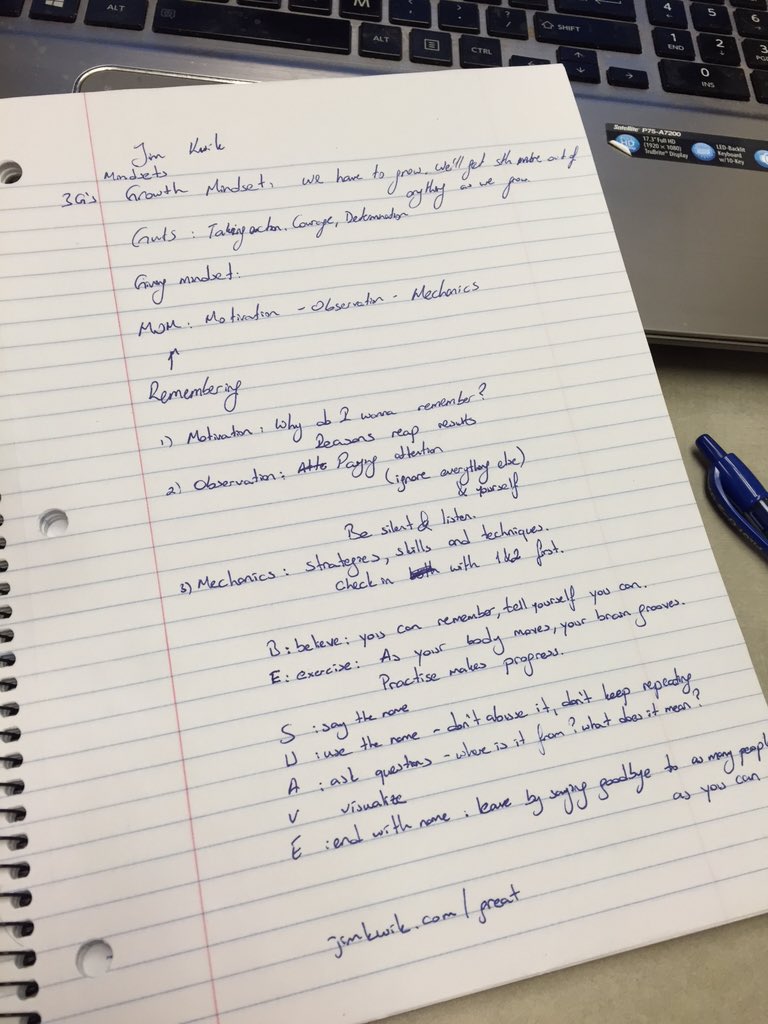 ALT
ALT
CTRL
SHIFT
4
5
6
1
END
2
3
0
INS
Satellite P75-A7200
HD
17.3" Full HD
(1920 x 1080)
TruBrite® Display
LED-Backlit
Keyboard
w/10-Key
Jim Kwik
Mindsets
3G's Growth Mindset, we have to grow. We'll get sth more out of
anything as we grow.
Guts : Taking action. Courage, Determination
Giving mindset:
MOM: Motivation - Observation - Mechanics
↑
Remembering
1) Motivation: Why do I wanna remember?
Reasons reap results
2) Observation: Atte Paying attention
(ignore everything else)
& yourself
Be silent & listen.
3) Mechanics : strategies, skills and techniques.
Check in both with 1&2 first.
B: believe: you can remember, tell yourself you can.
E: exercise: As your body moves, your brain grooves.
Practise makes progress.
S : say the name
U : use the name - don't abuse it, don't keep repeating
A : ask questions - where is it from? what does it mean?
V visualize
E : end with name : leave by saying goodbye to as many people
as you can
jimkwik.com/great